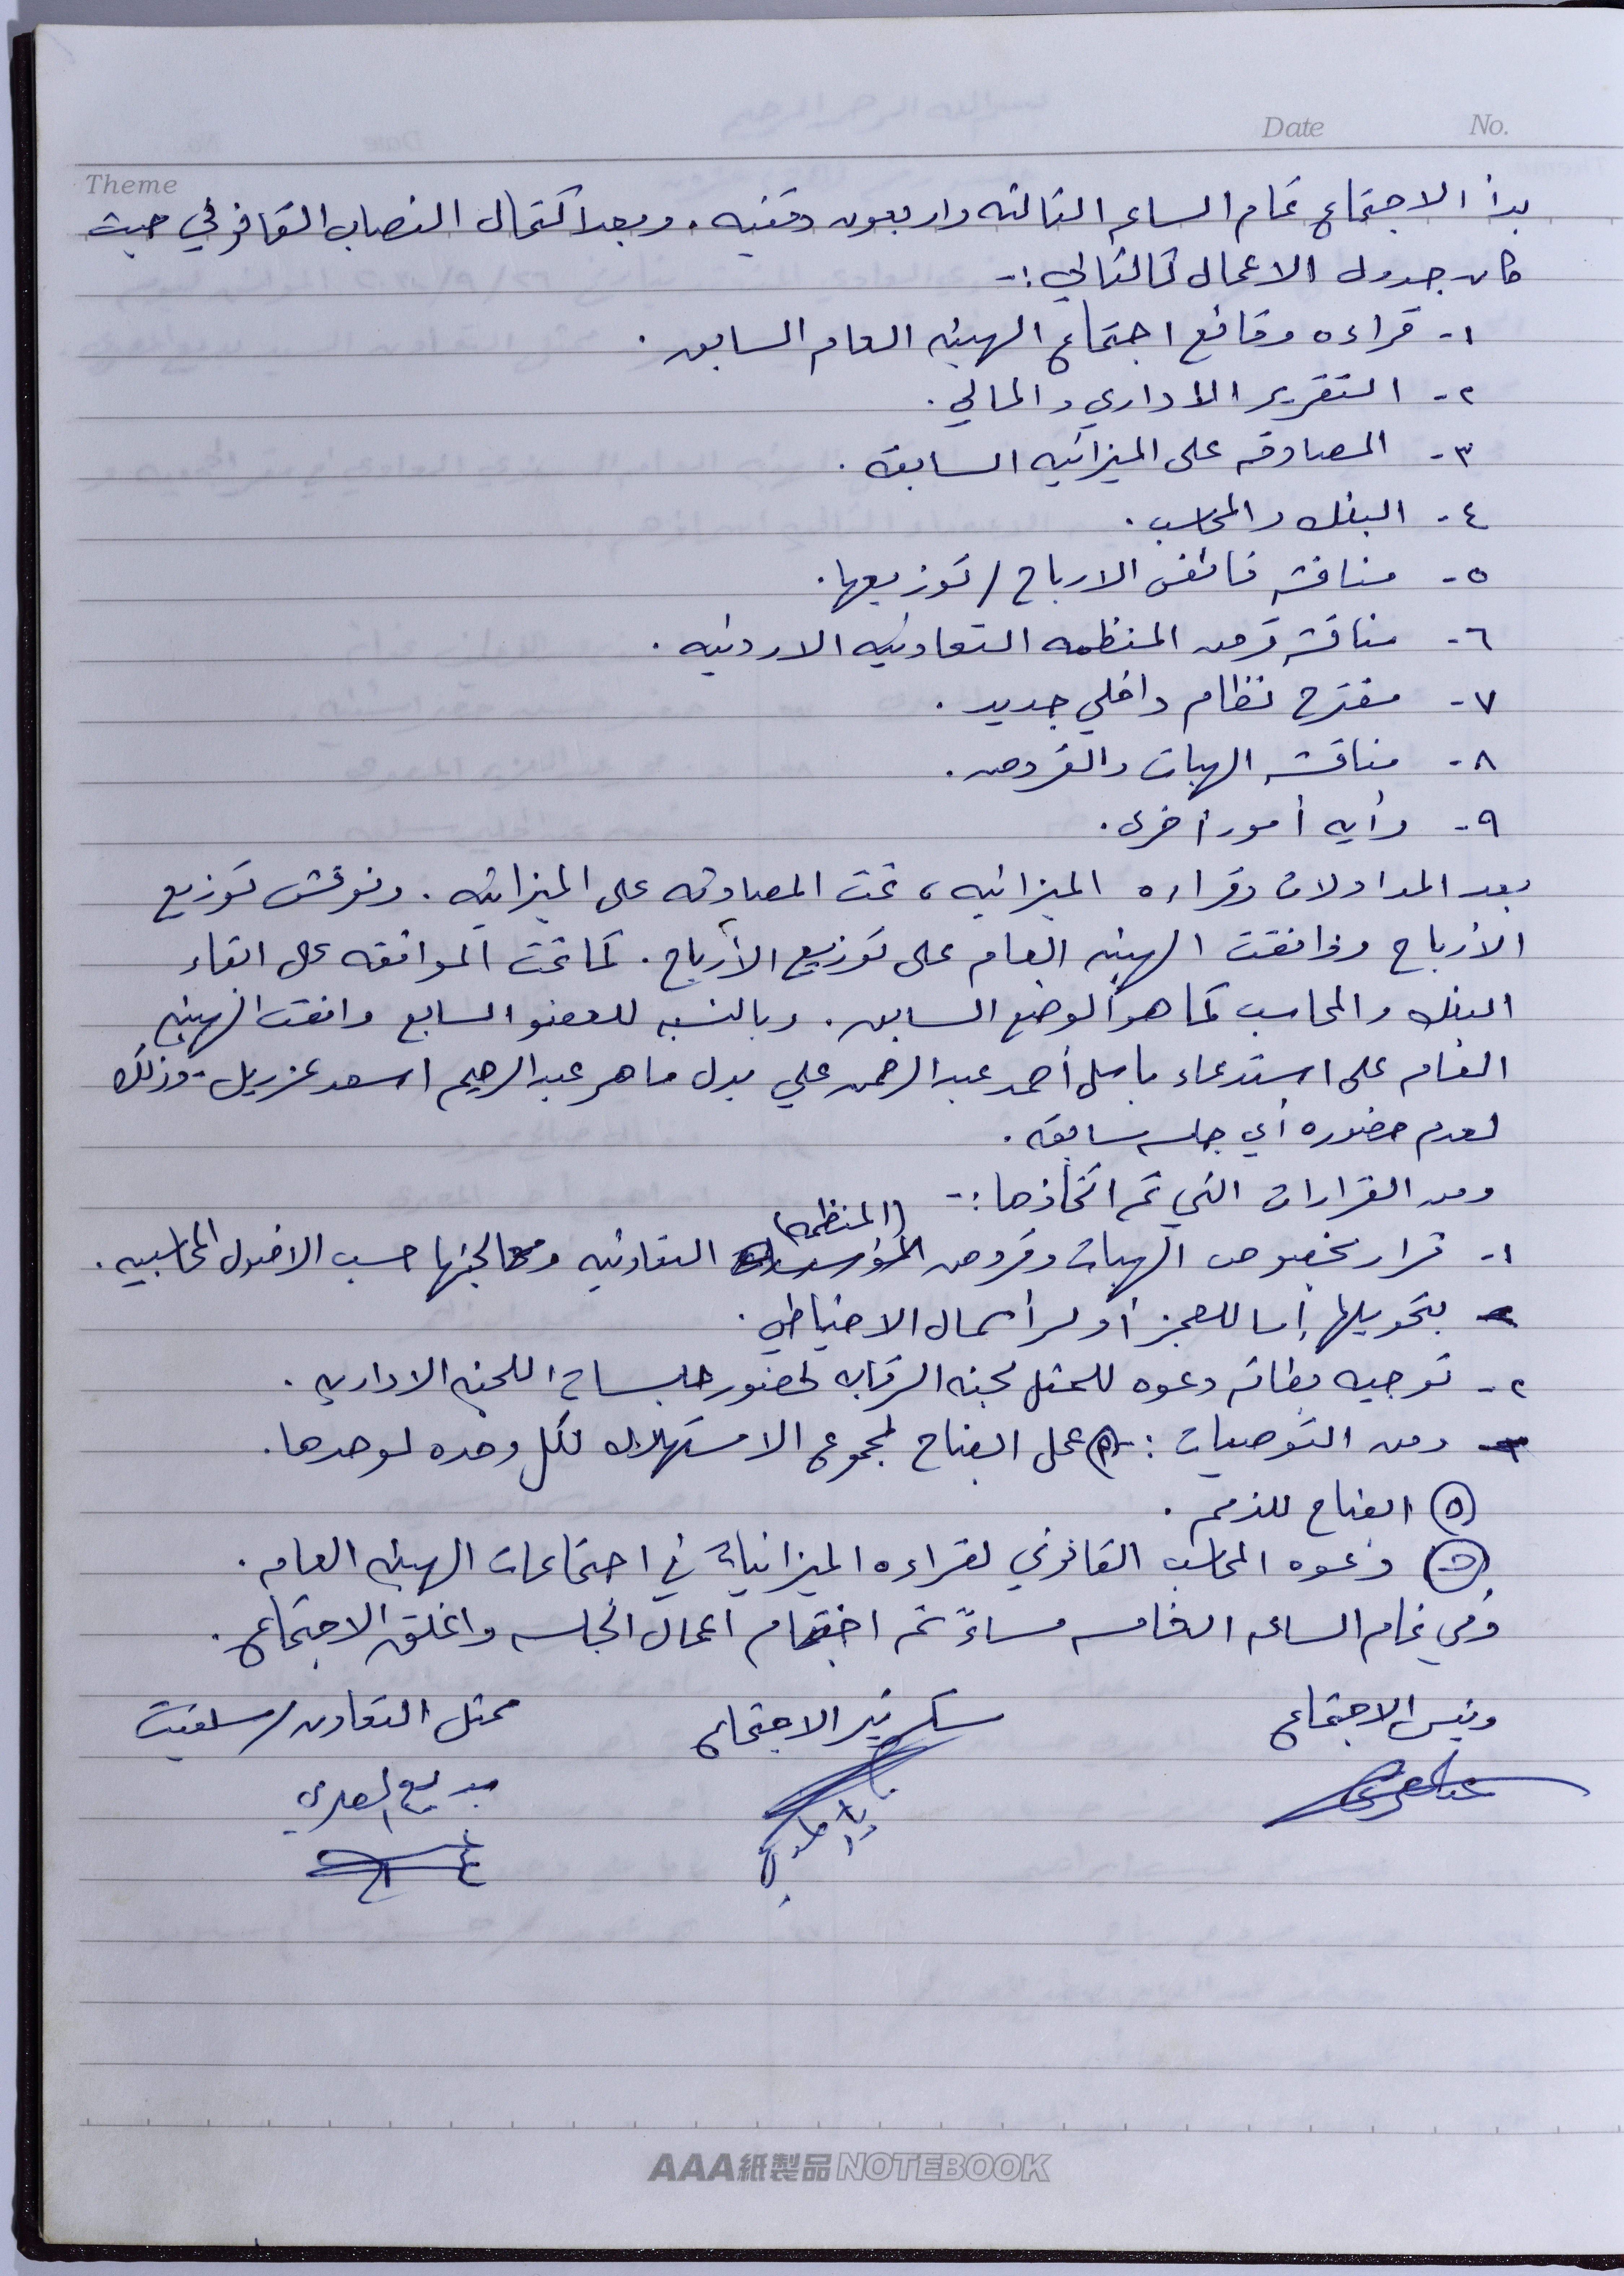 Date No.
Theme
بدأ الاجتماع تمام الساعه الثالثه واربعون دقيقه. وبعد اكتمال النصاب القانوني حيث
كان جدول الاعمال كالتالي :-
١- قراءه وقائع اجتماع الهيئه العامه السابق.
٢- التقرير الاداري والمالي.
٣- المصادقه على الميزانيه السابقه.
٤- البنك والمحاسب.
٥- مناقشه فائض الارباح / توزيعها.
٦- مناقشه قرض المنظمه التعاونيه الاردنيه.
٧- مقترح نظام داخلي جديد.
٨- مناقشه الهبات والقروض.
٩- وأيه أمور أخرى.
بعد المداولات وقراءه الميزانيه، تمت المصادقه على الميزانيه. ونوقش توزيع
الأرباح ووافقت الهيئه العامه على توزيع الأرباح. كما تمت الموافقه على ابقاء
البنك والمحاسب كما هو الوضع السابق. وبالنسبه للعضو السابع وافقت الهيئه
العامه على استدعاء باسل أحمد عبد الرحمن علي بدل ماهر عبد الرحيم اسعد عزريل - وذلك
لعدم حضوره أي جلسه سابقه.
ومن القرارات التي تم اتخاذها :-
١- قرار بخصوص الهبات وقروض (المنظمه) التعاونيه ومعالجتها حسب الاصول المحاسبيه.
بتحويلها إما للعجز أو لرأسمال الاحتياطي.
٢- توجيه بطاقه دعوه للممثل لجنه الرقابه لحضور جلسات اللجنه الاداريه.
ومن التوصيات : (أ) عمل ايضاح لمجموع الاستهلاك لكل وحده لوحدها.
(ب) ايضاح للذمم.
(ج) دعوه المحاسب القانوني لقراءه الميزانيات في اجتماعات الهيئه العامه.
وفي تمام الساعه الخامسه مساءً تم اختتام أعمال الجلسه واغلق الاجتماع.
رئيس الاجتماع سكرتير الاجتماع ممثل التعاون / سلفيت
AAA紙製品NOTEBOOK